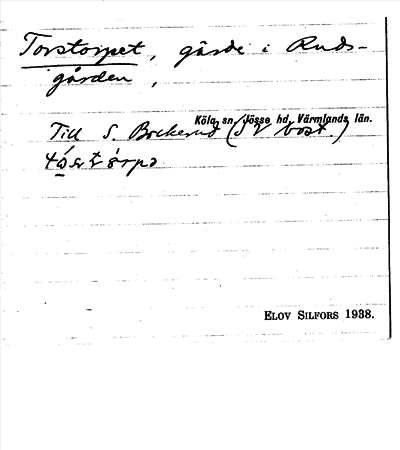 Torstorpet, gärde i Ruds-
gården,
Köla sn, Jösse hd, Värmlands län.
Till S. Bockerud (SV bost.)
ELOV SILFORS 1938.